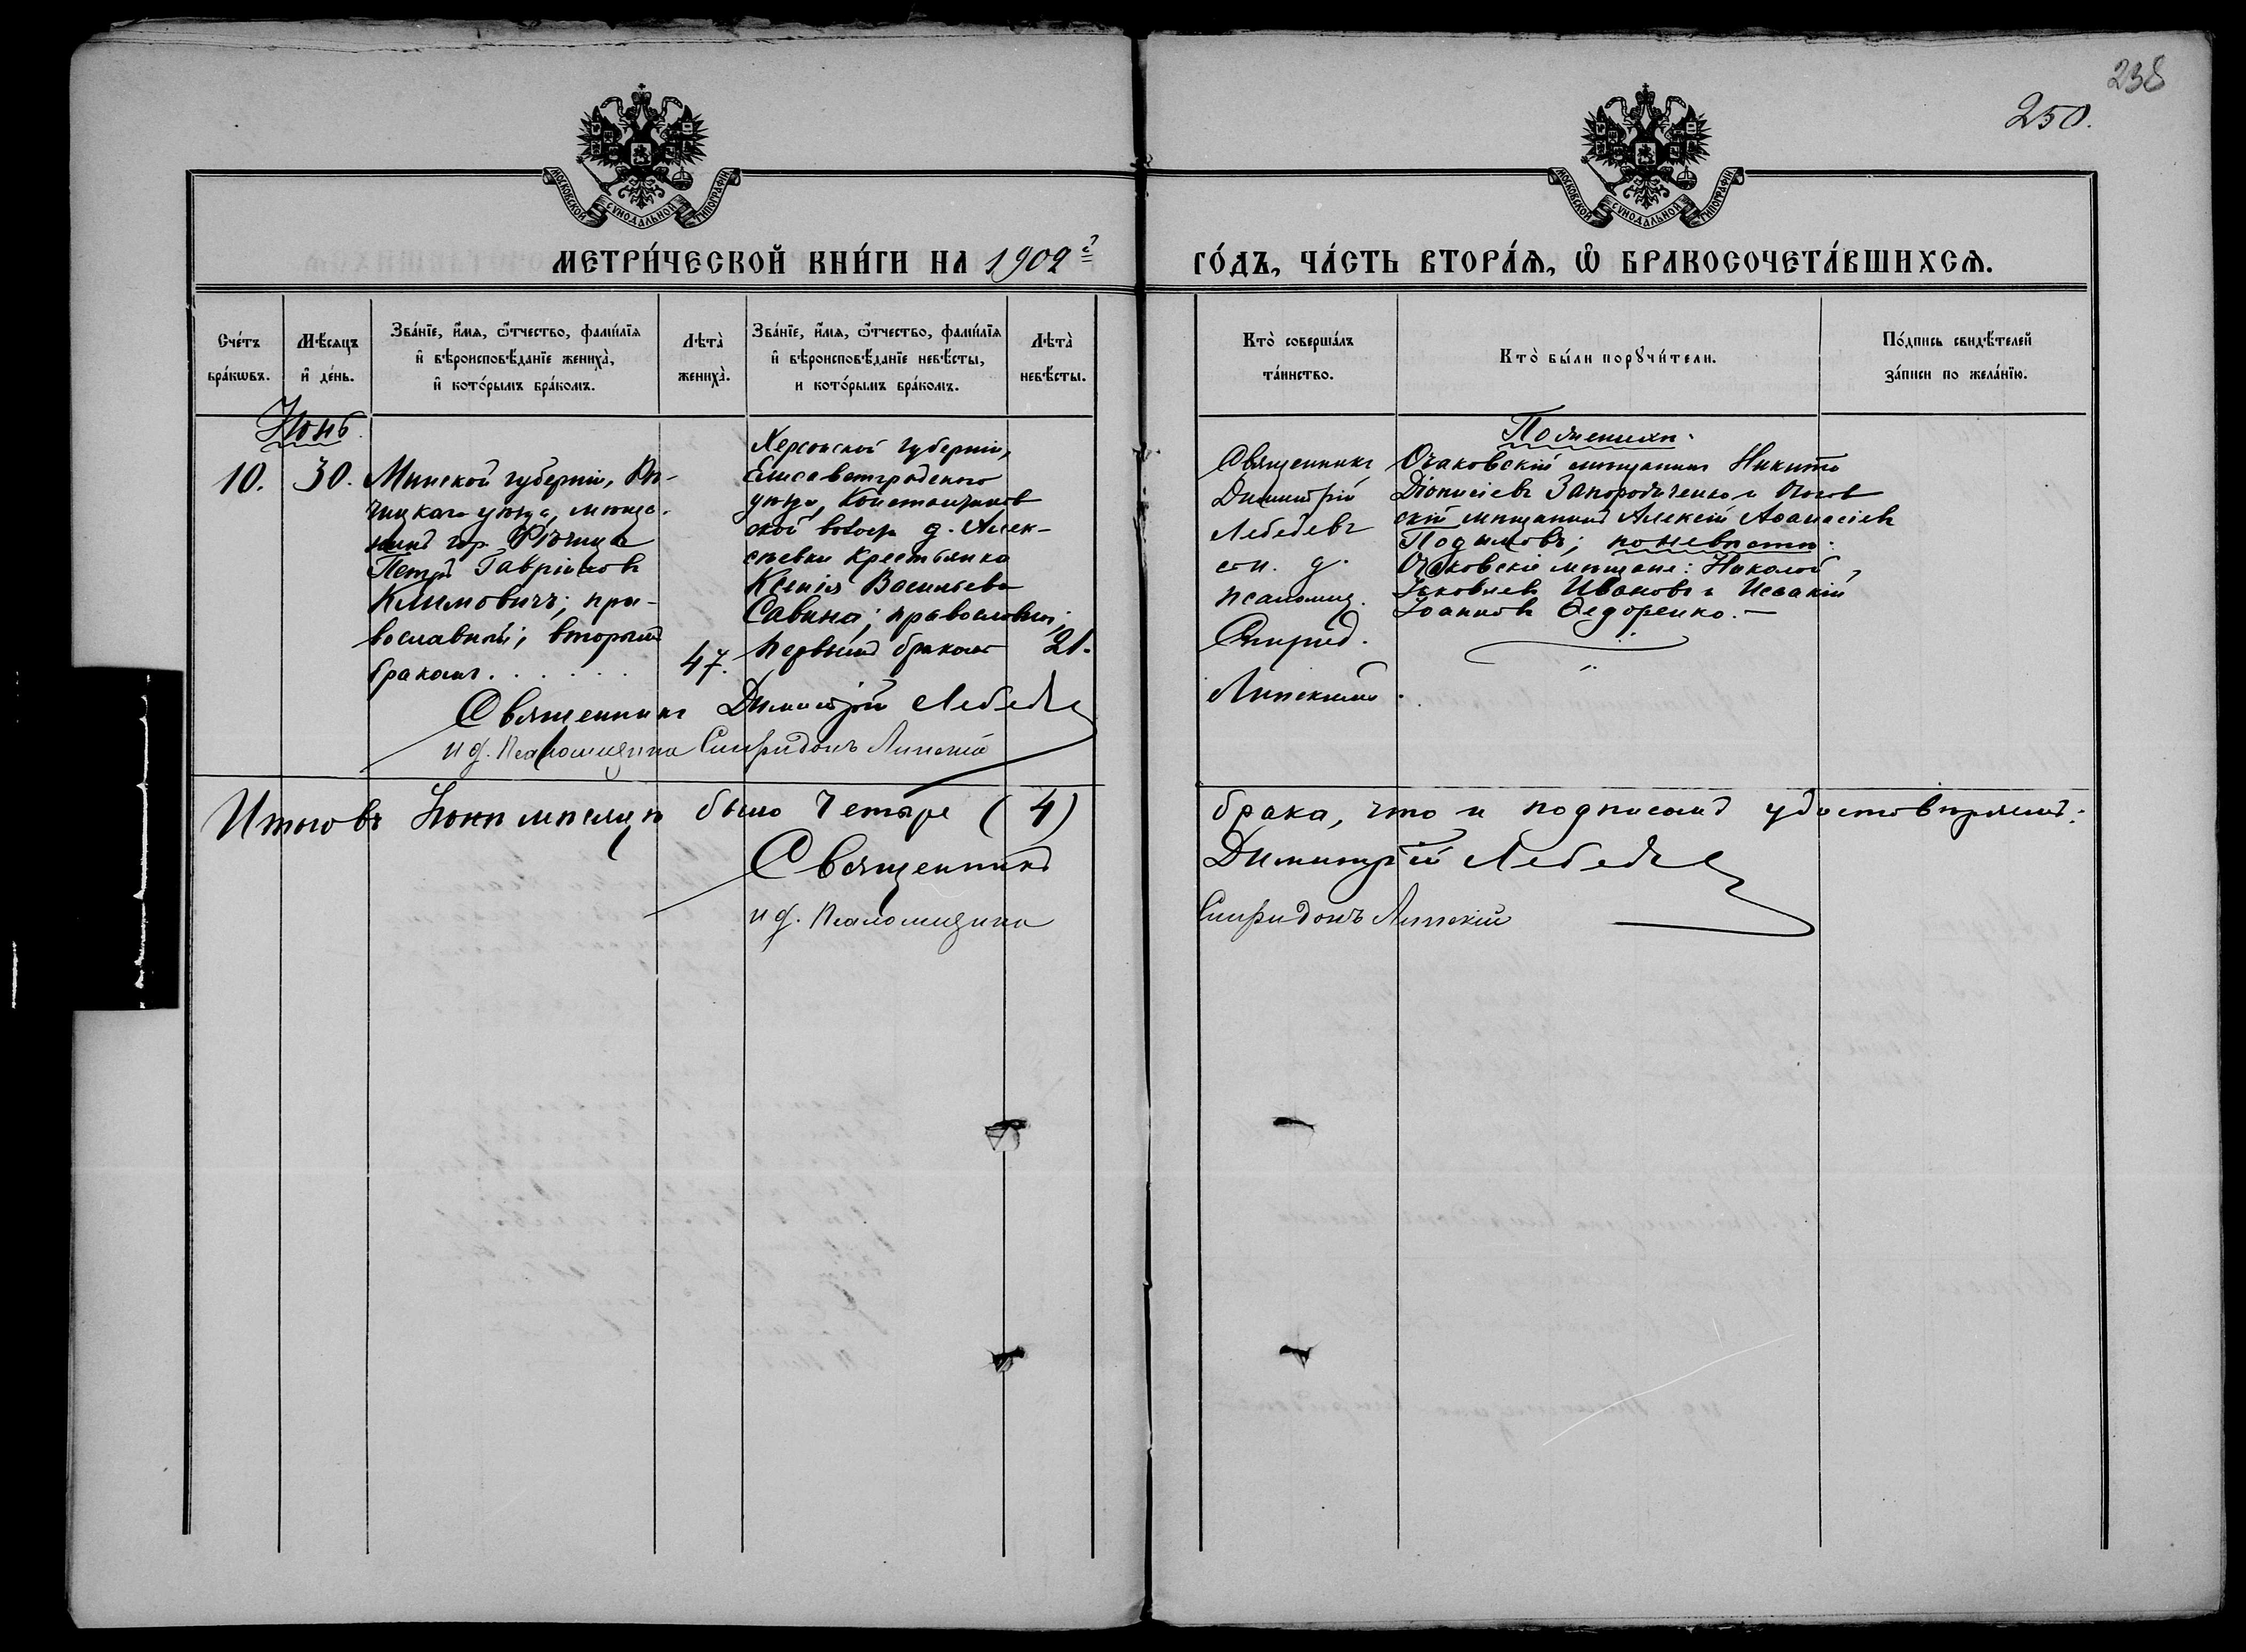 238
250.
МОСКОВСКОЙ СУНОДАЛЬНОЙ ТИПОГРАФІИ
МОСКОВСКОЙ СУНОДАЛЬНОЙ ТИПОГРАФІИ
МЕТРИ́ЧЕСКОЙ КНИ́ГИ НА 1902 ГО́ДЪ, ЧА́СТЬ ВТОРА́Ѧ, Ѡ҆ БРАКОСОЧЕТА́ВШИХСѦ.
Сче́тъ бра́кѡвъ.
Мѣ́сяцъ и҆ де́нь.
Зва́нїе, и҆́мѧ, ѻ҆́тчество, фами́лїѧ
и҆ вѣроисповѣ́данїе жениха̀,
и҆ кото́рымъ бра́комъ.
Лѣта̀ жениха̀.
Зва́нїе, и҆́мѧ, ѻ҆́тчество, фами́лїѧ
и҆ вѣроисповѣ́данїе невѣ́сты,
и кото́рымъ бра́комъ.
Лѣта̀ невѣ́сты.
Кто̀ соверша́лъ та́инство.
Кто̀ бы́ли порꙋчи́тели.
По́дпись свидѣ́телей за́писи по жела́нїю.
Іюнь.
10.
30.
Минской губерніи, Рѣ-
чицкаго уѣзда, мѣща-
нинъ гор. Рѣчица
Петръ Гавріиловъ
Климовичъ; пра-
вославный; вторымъ
бракомъ . . . . . .
47.
Херсонской губерніи,
Елисаветградскаго
уѣзда, Константинов
ской волос. д. Алек-
сѣевки крестьянка
Ксенія Васильева
Савина; православной;
первымъ бракомъ
21.
Священникъ
Димитрій
Лебедевъ
псаломщ.
Спирид.
Липскимъ.
По женихѣ:
Очаковскій мѣщанинъ Никита
Діонисіевъ Запорожченко и Очаков
скій мѣщанинъ Алексій Аѳанасіевъ
по невѣстѣ:
Очаковскіе мѣщане: Николай
Яковлевъ Ивановъ и Исаакій
Іоанновъ Ѳедоренко. —
Священникъ Димитрій Лебедевъ
и д. Псаломщика Спиридонъ Липскій
Итого въ Іюнѣ мѣсяцѣ было Четыре (4) брака, что и подписомъ удостовѣряемъ:
Священникъ Димитрій Лебедевъ
и д. Псаломщика Спиридонъ Липскій